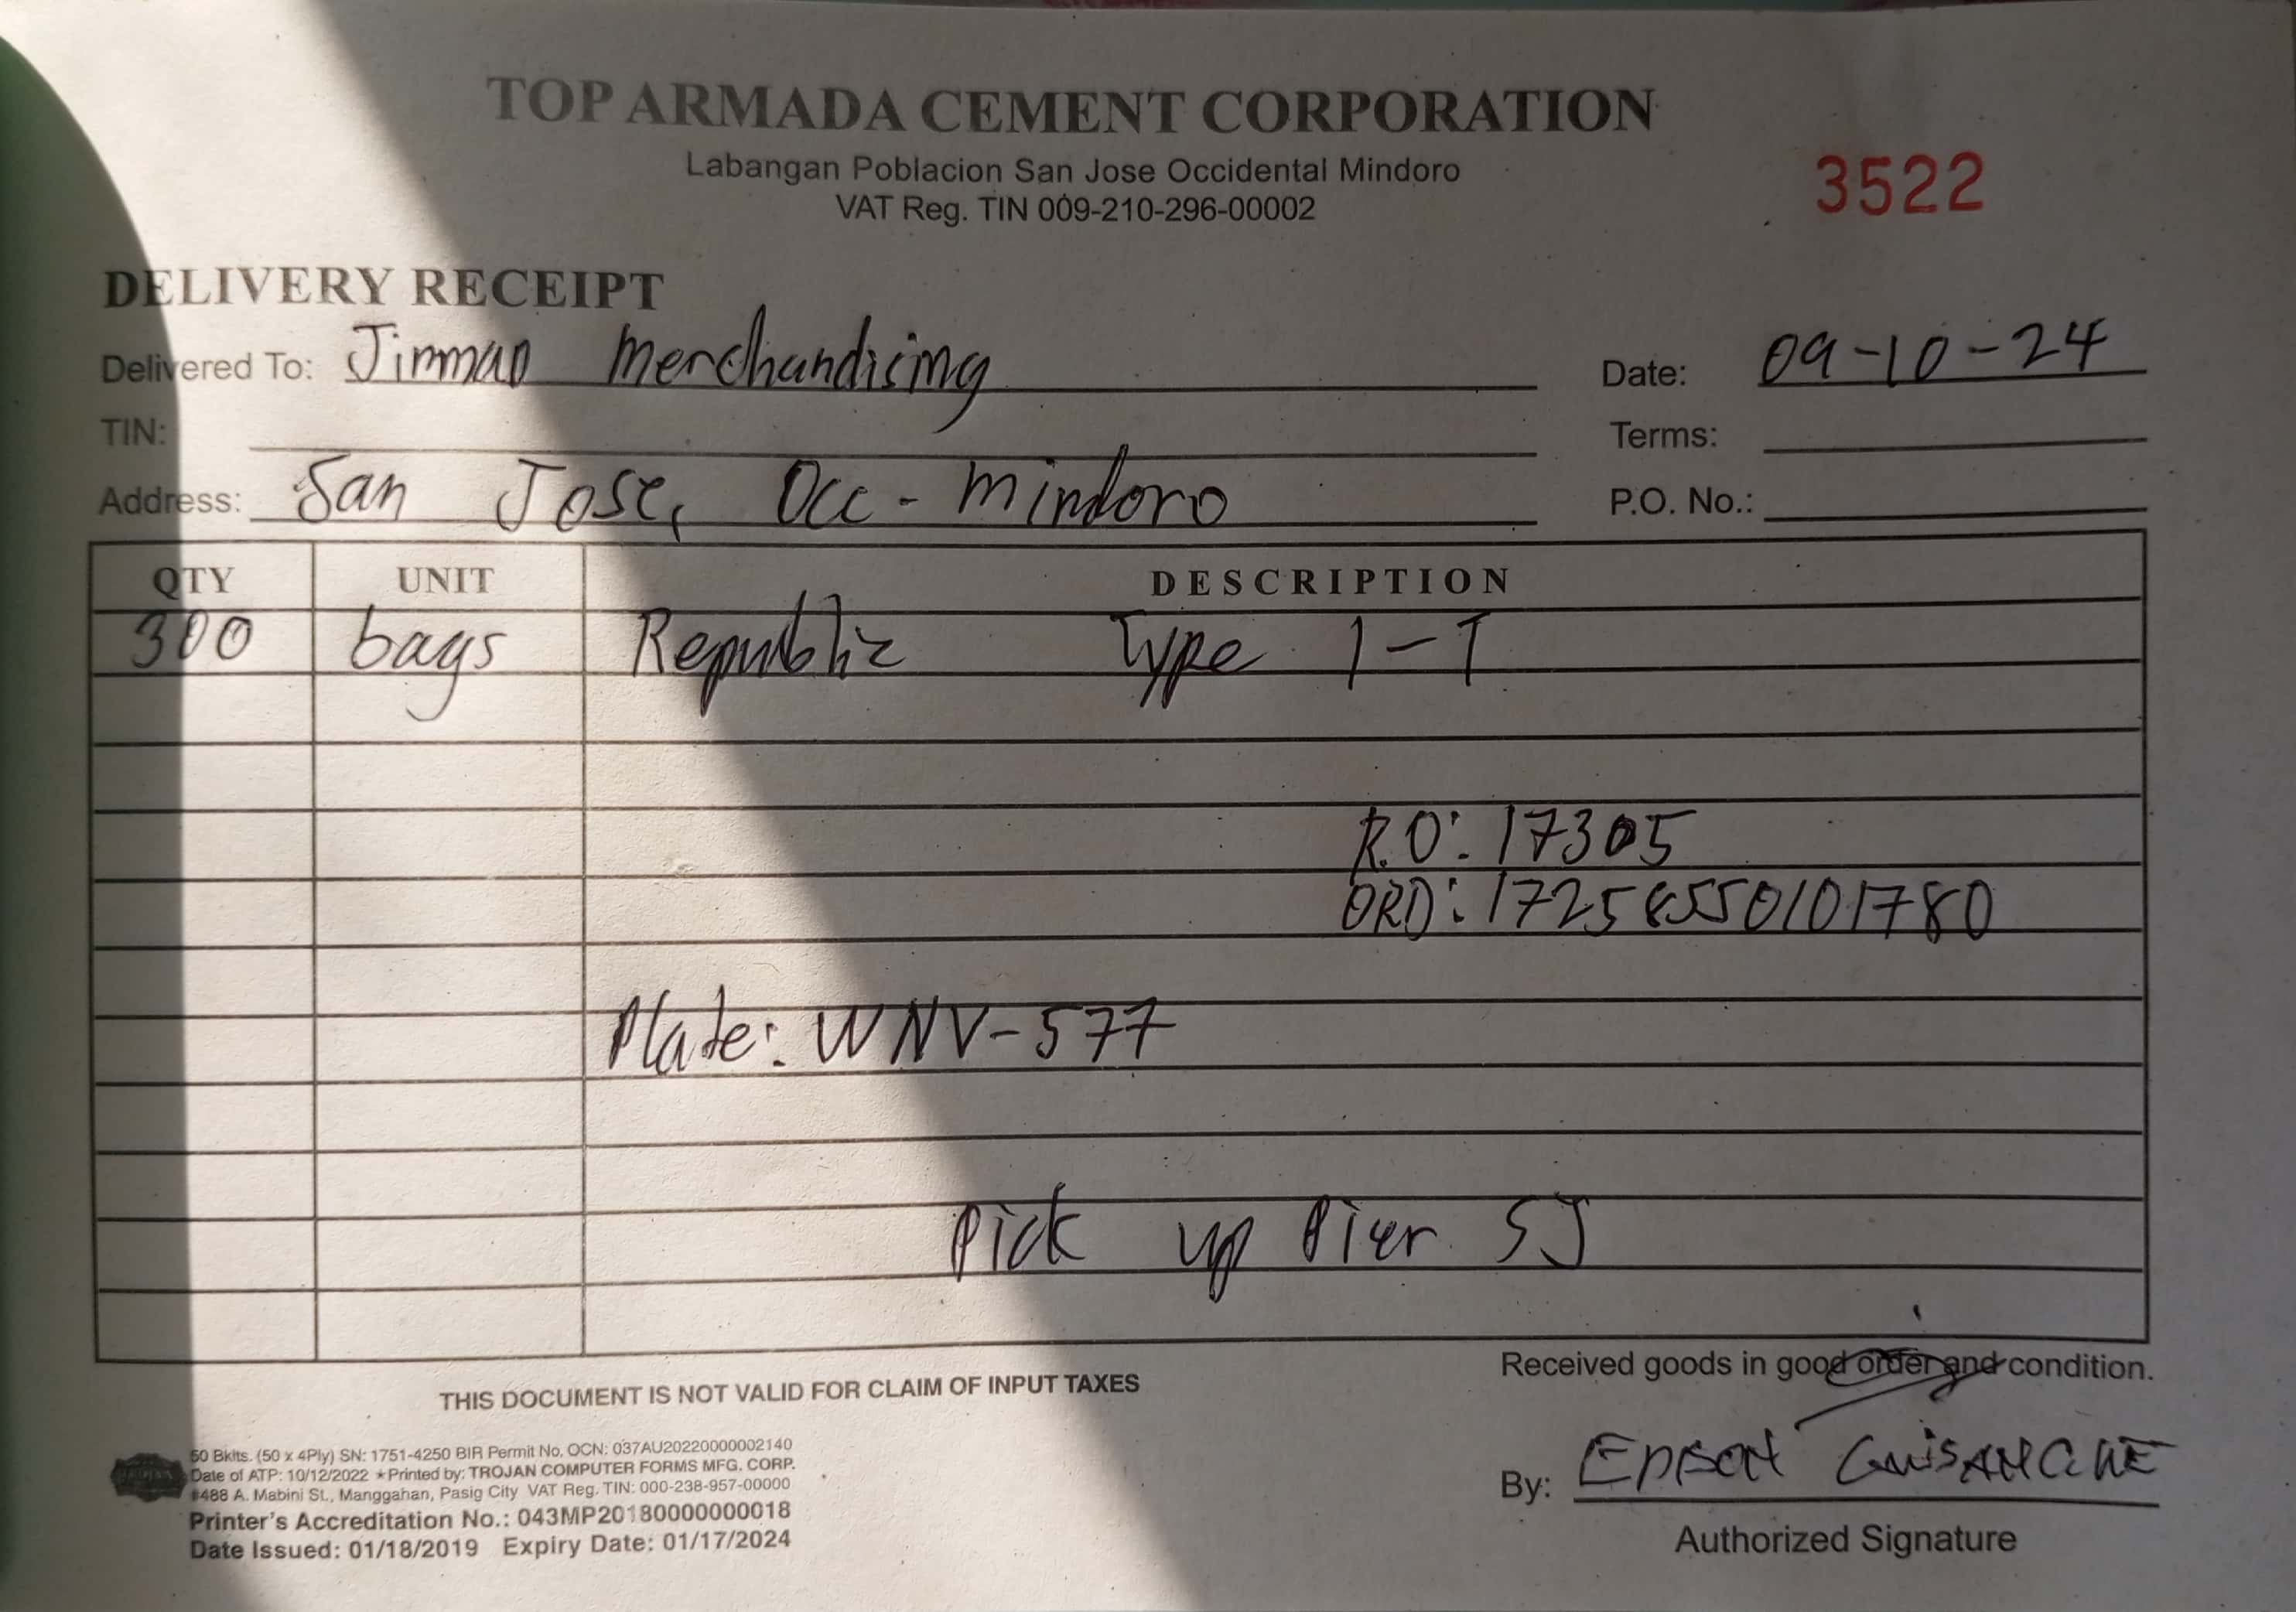 TOP ARMADA CEMENT CORPORATION
Labangan Poblacion San Jose Occidental Mindoro
VAT Reg. TIN 009-210-296-00002
3522
DELIVERY RECEIPT
Delivered To: Jimman Merchandising
Date: 09-10-24
TIN:
Terms:
Address: San Jose, Occ - Mindoro
P.O. No.:
QTY UNIT DESCRIPTION
300 bags Republic Type 1-T
R.O: 17305
ORD: 17258550101780
Plate: WNV-577
Pick up Pier SJ
Received goods in good order and condition.
THIS DOCUMENT IS NOT VALID FOR CLAIM OF INPUT TAXES
50 Bklts. (50 x 4Ply) SN: 1751-4250 BIR Permit No. OCN: 037AU20220000002140
Date of ATP: 10/12/2022 ★Printed by: TROJAN COMPUTER FORMS MFG. CORP.
#488 A. Mabini St., Manggahan, Pasig City VAT Reg. TIN: 000-238-957-00000
Printer's Accreditation No.: 043MP20180000000018
Date Issued: 01/18/2019 Expiry Date: 01/17/2024
By:
Authorized Signature